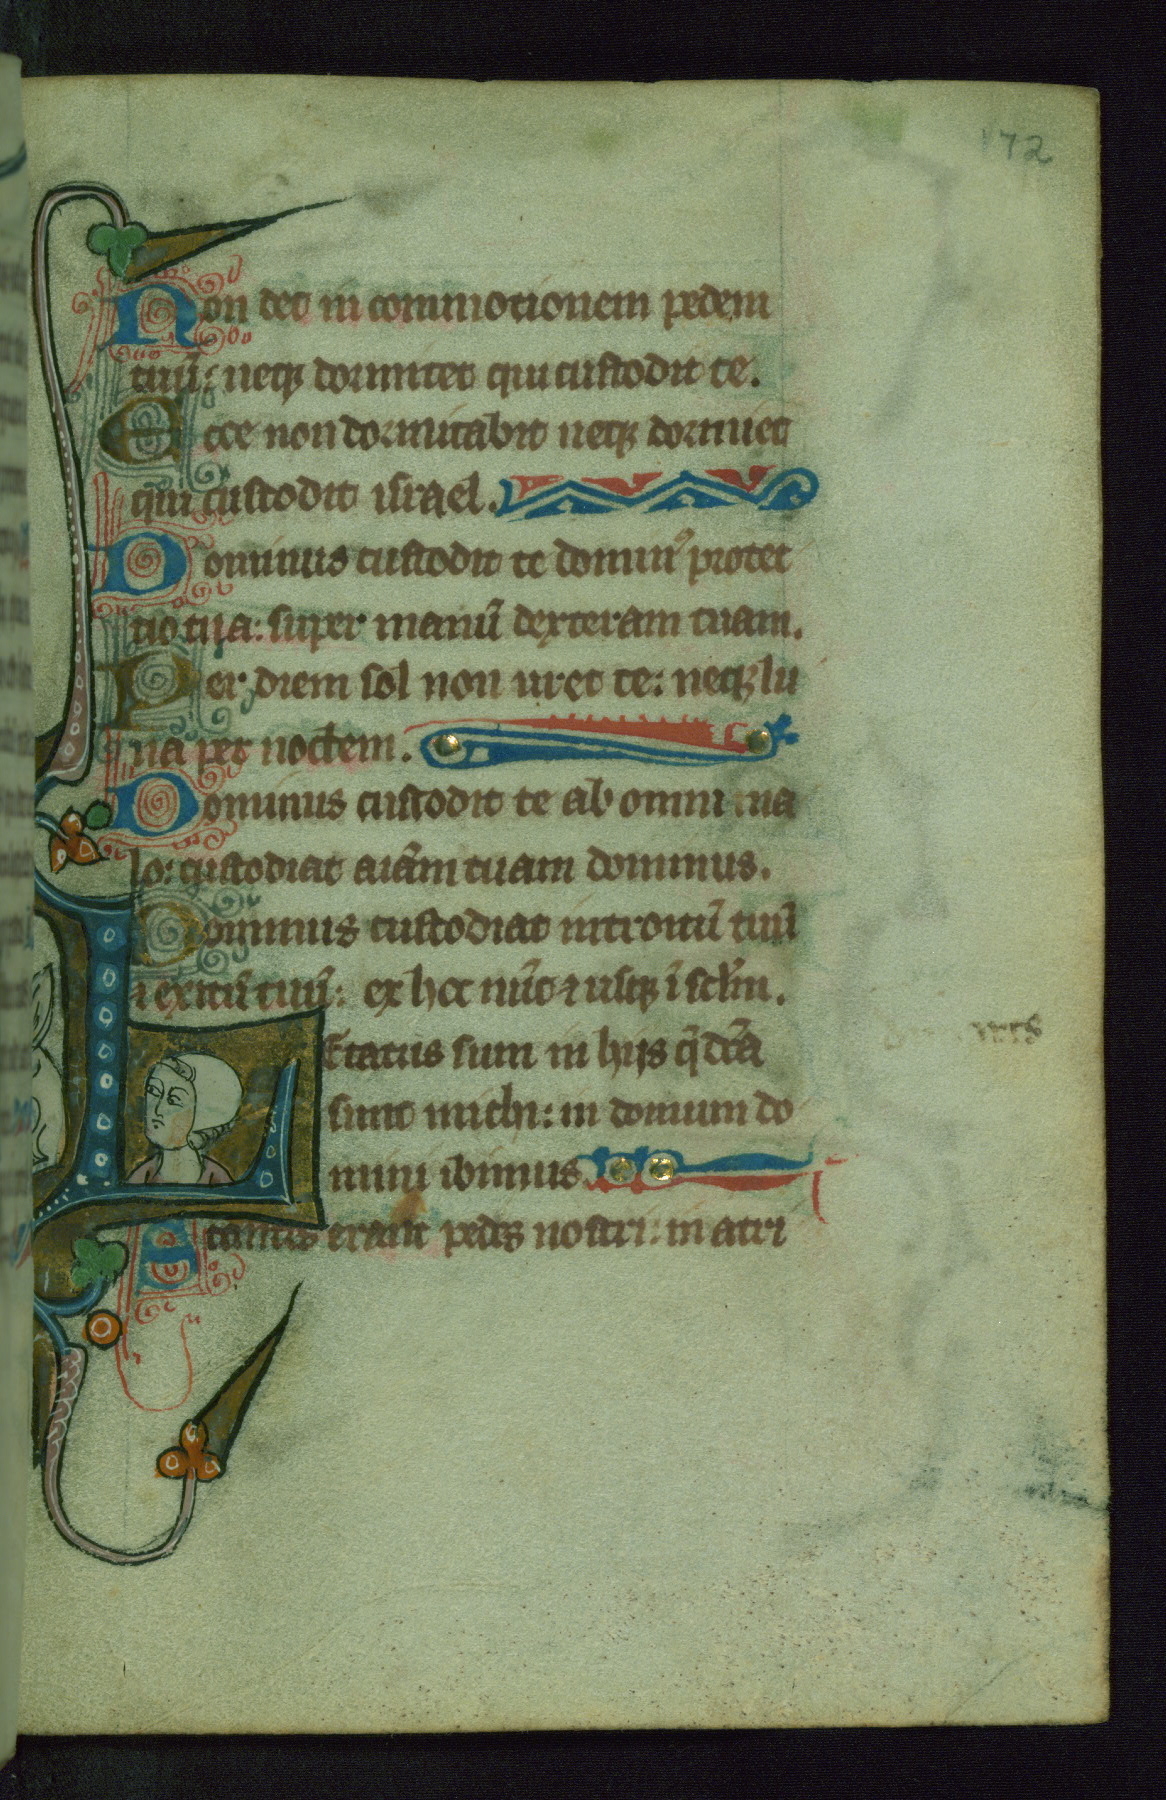 172
Non det in commotionem pedem
tuū: neqꝫ dormitet qui custodit te.
Ecce non dormitabit neqꝫ dormiet
qui custodit israel.
Dominus custodit te dominꝰ protec
tio tua: super manū dexteram tuam.
Per diem sol non uret te: neqꝫ lu
na per noctem.
Dominus custodit te ab omni ma
lo: custodiat aīam tuam dominus.
Dominus custodiat introitū tuū
⁊ exitū tuū: ex hoc nūc ⁊ usqꝫ ī sclm̄.
Letatus sum in hijs q̄ dcā
sunt michi: in domum do
mini ibimus.
Stantes erant pedes nostri: in atri